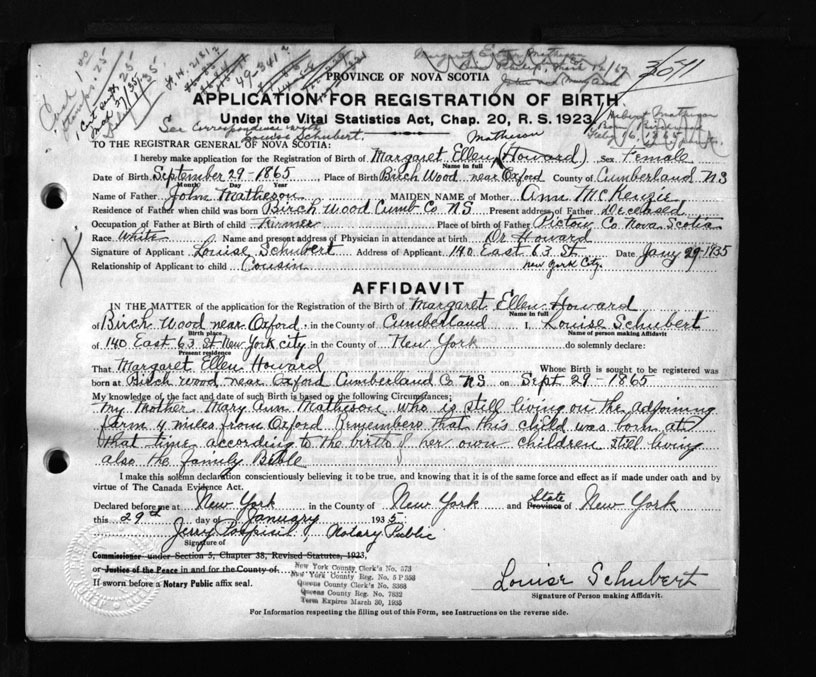 3041
PROVINCE OF NOVA SCOTIA
APPLICATION FOR REGISTRATION OF BIRTH
Under the Vital Statistics Act, Chap. 20, R. S. 1923
See Correspondence with
Louise Schubert.
TO THE REGISTRAR GENERAL OF NOVA SCOTIA:
Matheson
I hereby make application for the Registration of Birth of Margaret Ellen (Howard) Sex Female
Name in full
Date of Birth September 29 - 1865 Place of Birth Birch Wood near Oxford County of Cumberland NS
Month Day Year
Name of Father John Matheson MAIDEN NAME of Mother Ann McKenzie
Residence of Father when child was born Birch Wood Cumb Co NS Present address of Father Deceased
Occupation of Father at Birth of child Farmer Place of birth of Father Pictou Co Nova Scotia
Race White Name and present address of Physician in attendance at birth Dr Howard
Signature of Applicant Louise Schubert Address of Applicant 140 East 63 St. Date Jany 29-1935
Relationship of Applicant to child Cousin New York City.
AFFIDAVIT
IN THE MATTER of the application for the Registration of the Birth of Margaret Ellen Howard
Name in full
of Birch Wood near Oxford, in the County of Cumberland I, Louise Schubert
Birth place Name of person making Affidavit
of 140 East 63 St New York City in the County of New York do solemnly declare:
Present residence
That Margaret Ellen Howard Whose Birth is sought to be registered was
born at Birch Wood near Oxford Cumberland Co NS on Sept. 29 - 1865
My knowledge of the fact and date of such Birth is based on the following Circumstances;
My Mother Mary Ann Matheson who is still living on the adjoining
farm 4 miles from Oxford Remembers that this child was born at
that time according to the birth of her own children still living
also the family Bible
I make this solemn declaration conscientiously believing it to be true, and knowing that it is of the same force and effect as if made under oath and by
virtue of The Canada Evidence Act.
Declared before me at New York in the County of New York and State Province of New York
this 29th day of January 1935
Notary Public
Signature of
Commissioner under Section 5, Chapter 38, Revised Statutes, 1923.
or Justices of the Peace in and for the County of
If sworn before a Notary Public affix seal.
New York County Clerk's No. 573
New York County Reg. No. 5 P 358
Queens County Clerk's No. 3368
Queens County Reg. No. 7832
Term Expires March 30, 1935
Louise Schubert
Signature of Person making Affidavit.
For Information respecting the filling out of this Form, see Instructions on the reverse side.